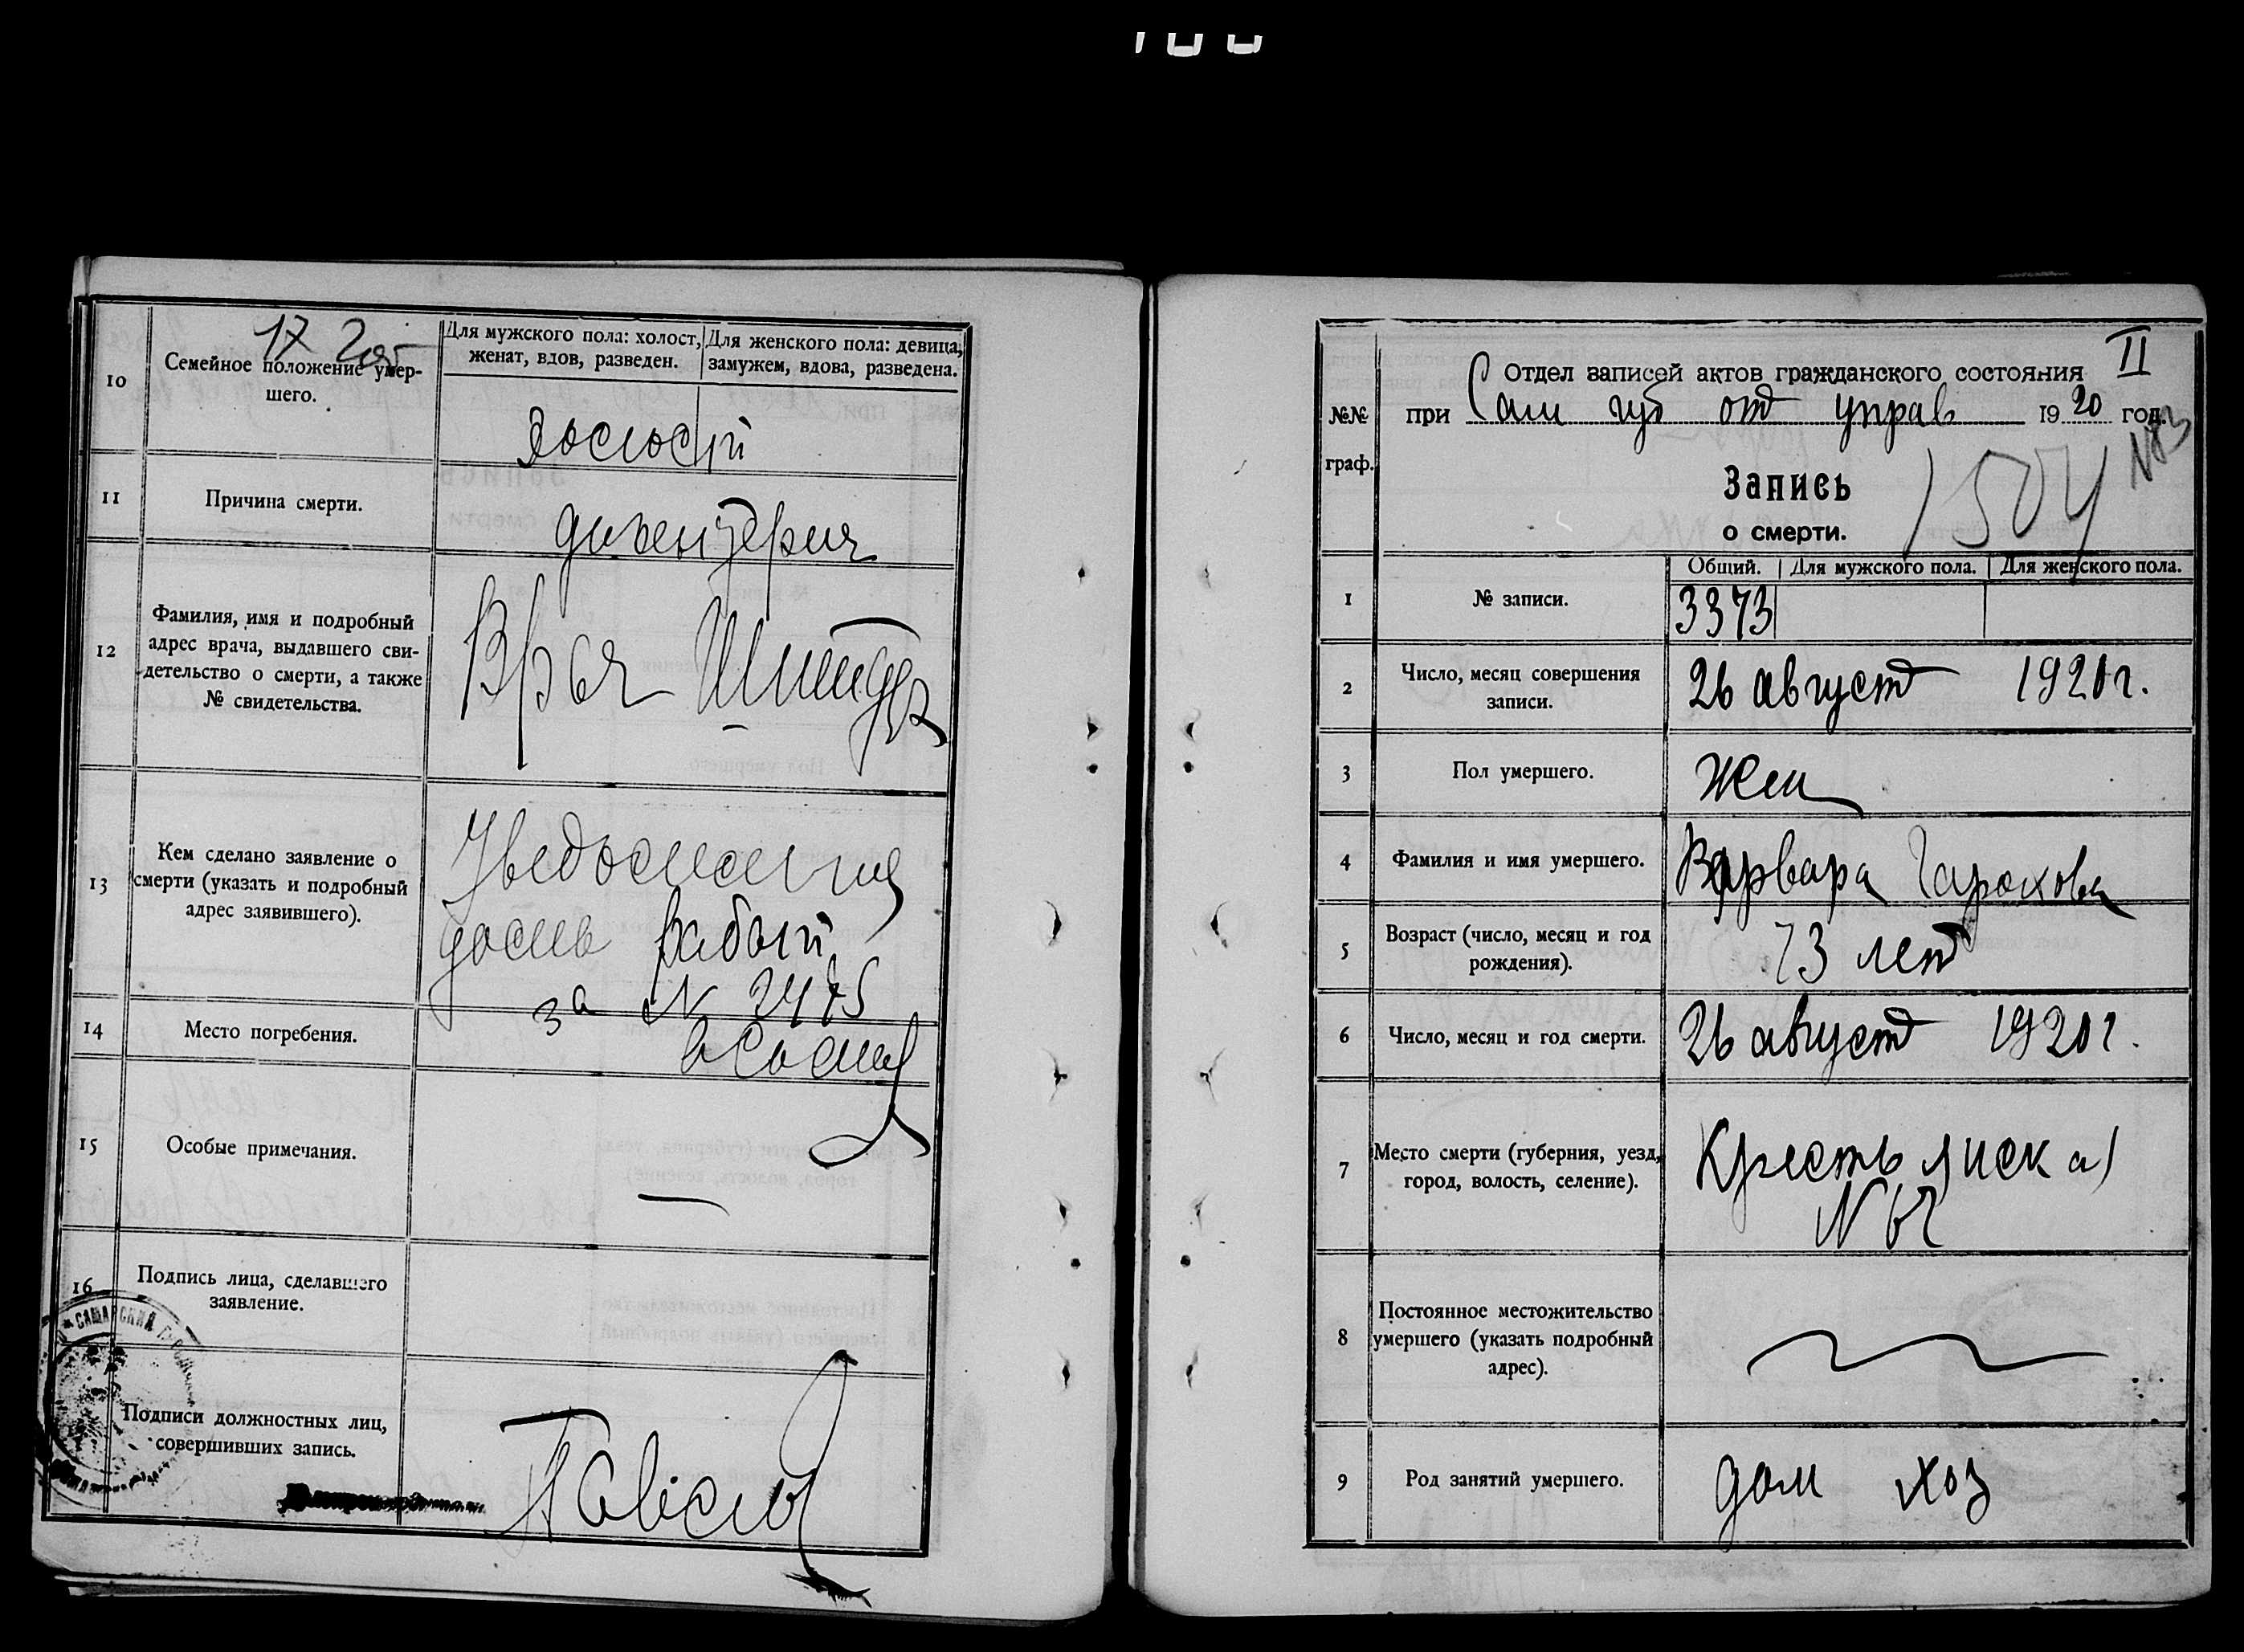 17
10
Семейное положение умер-
шего.
Для мужского пола: холост,
женат, вдов, разведен.
Для женского пола: девица,
замужем, вдова, разведена.
холостой
11
Причина смерти.
дизентерия
12
Фамилия, имя и подробный
адрес врача, выдавшего сви-
детельство о смерти, а также
№ свидетельства.
Врач
13
Кем сделано заявление о
смерти (указать и подробный
адрес заявившего).
Уведомления
за № 2475
14
Место погребения.
15
Особые примечания.
—
16
Подпись лица, сделавшего
заявление.
САМАРСКИЙ
Подписи должностных лиц,
совершивших запись.
II
Отдел записей актов гражданского состояния
№№
граф.
при Сам губ отд управ 1920 год.
1504
Запись
о смерти.
Общий. Для мужского пола. Для женского пола.
1
№ записи.
3373
2
Число, месяц совершения
записи.
26 август 1920 г.
3
Пол умершего.
Жен
4
Фамилия и имя умершего.
Варвара Гарохова
5
Возраст (число, месяц и год
рождения).
73 лет
6
Число, месяц и год смерти.
26 август 1920 г.
7
Место смерти (губерния, уезд,
город, волость, селение).
Крестьянская
8
Постоянное местожительство
умершего (указать подробный
адрес).
9
Род занятий умершего.
дом хоз